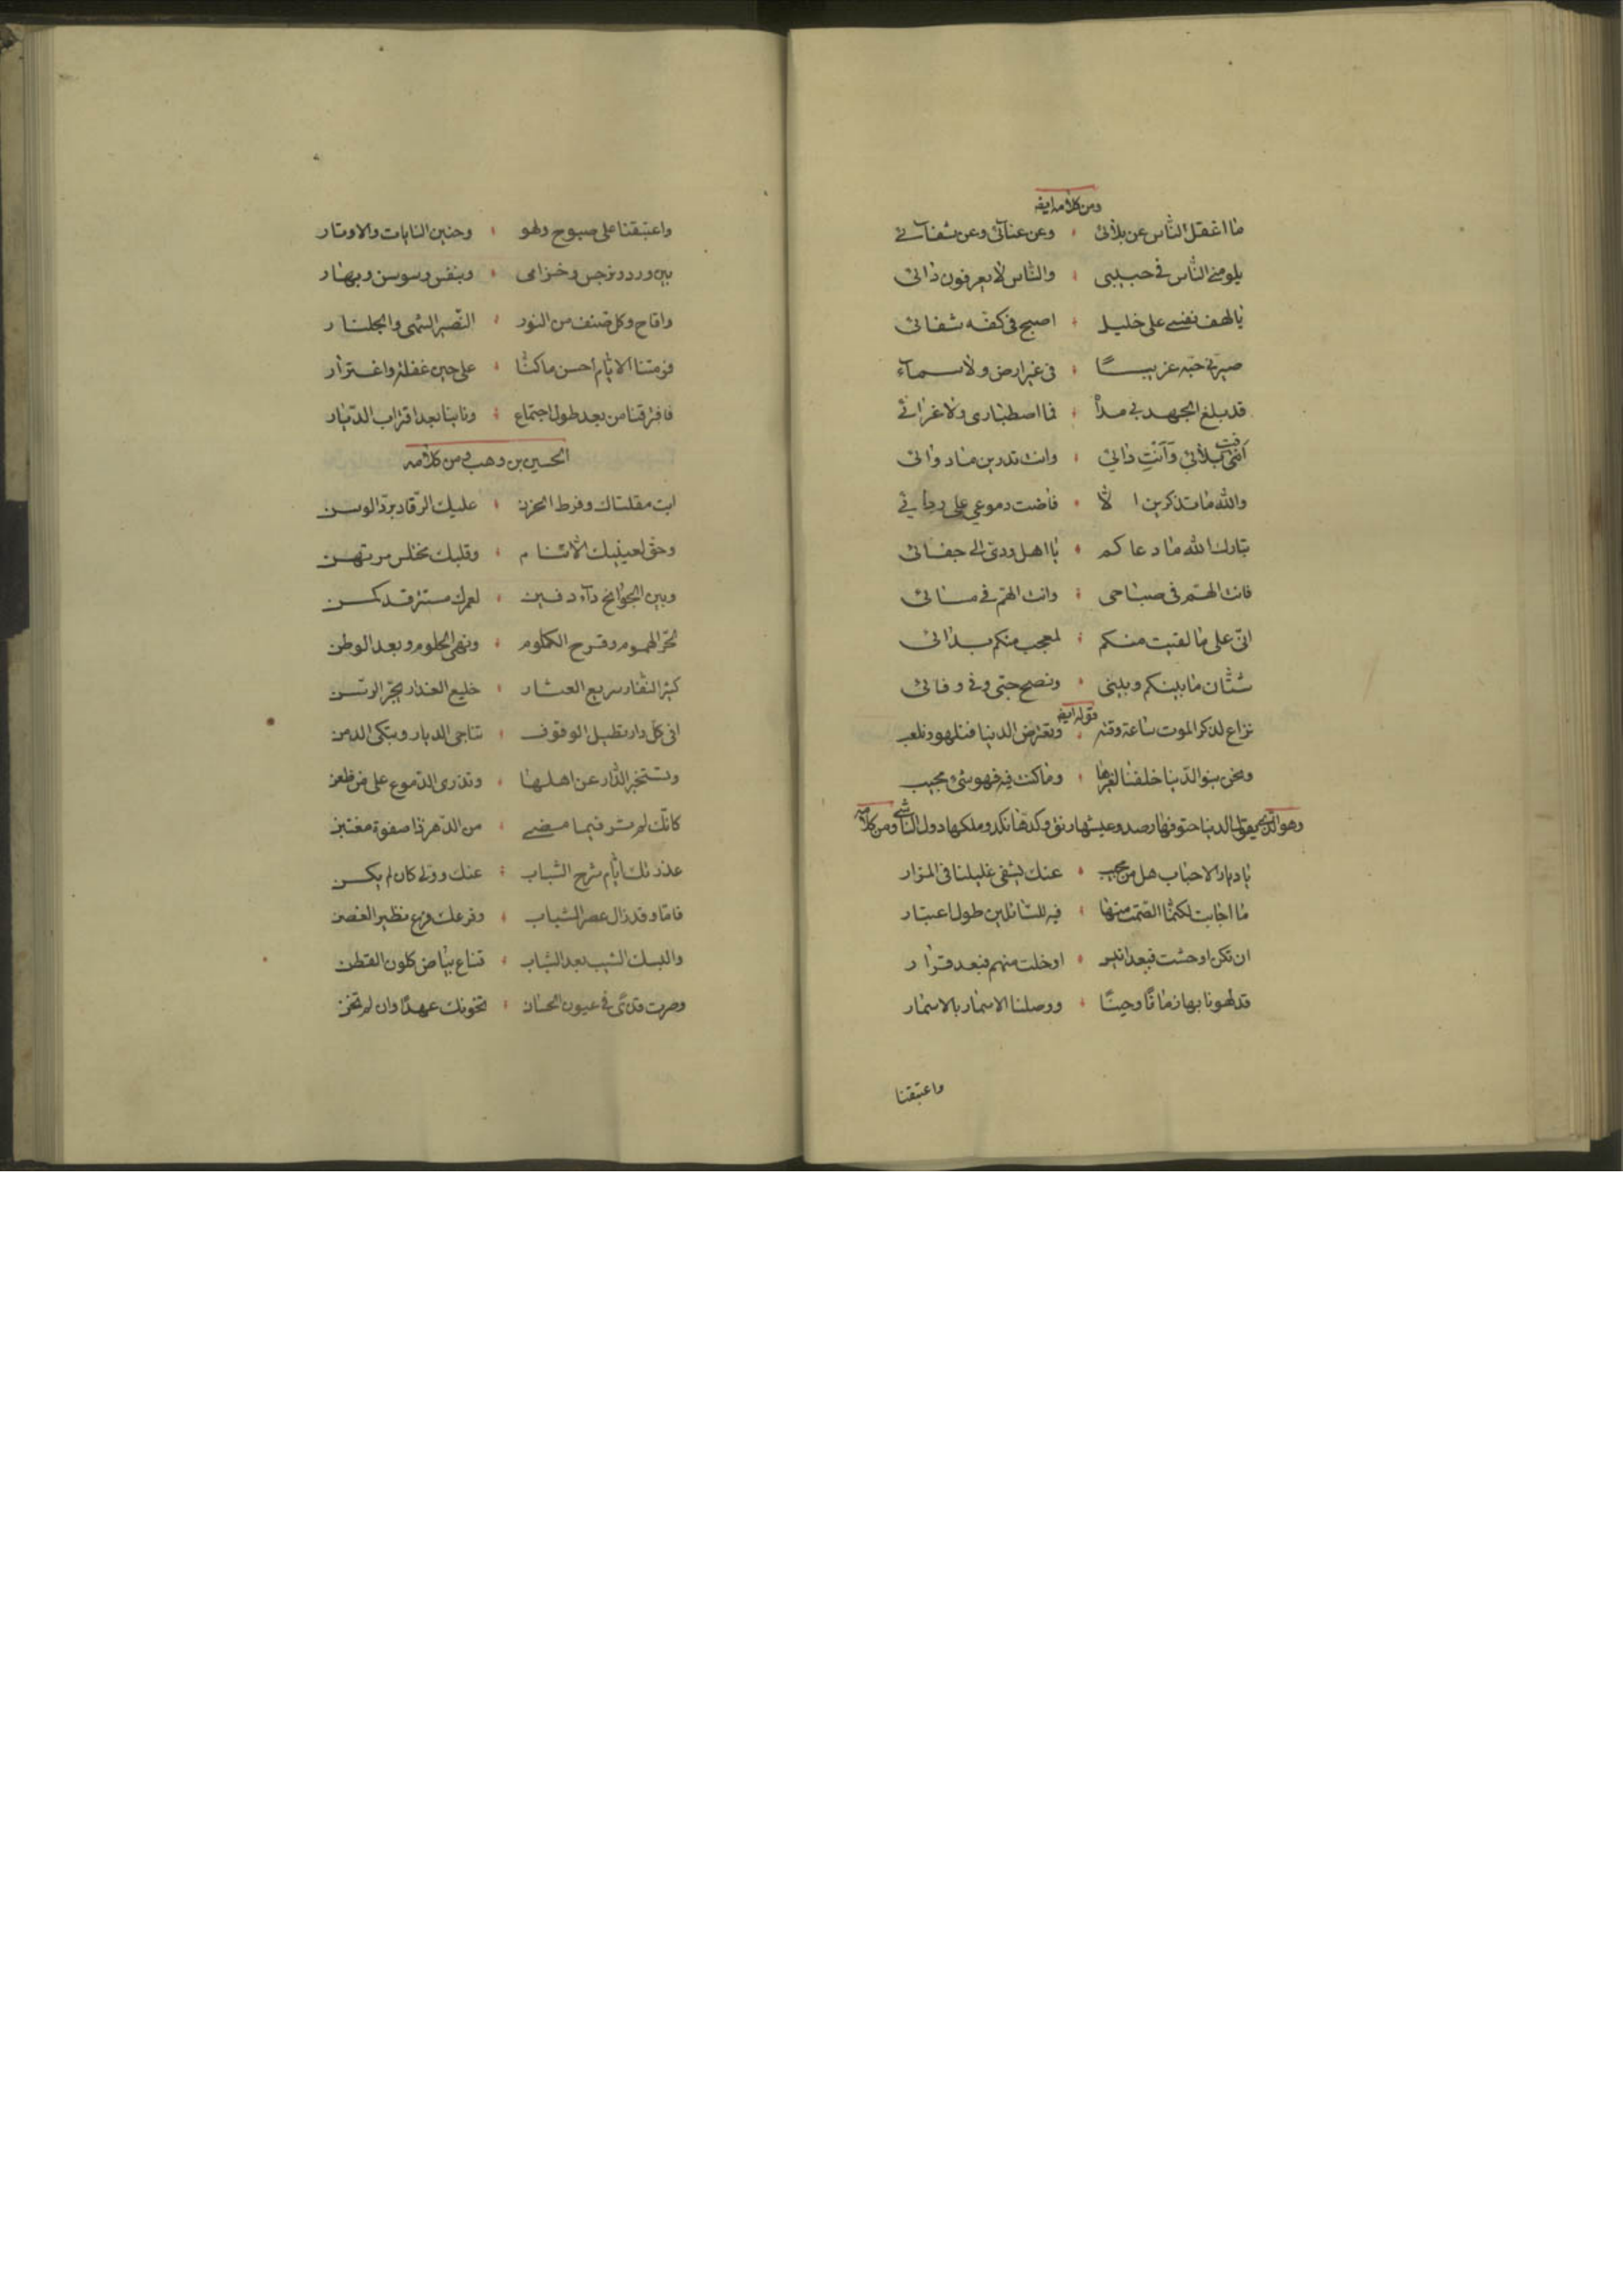 ومن كلامه ايضا
ما اغفل الناس عن بلائى وعن عنائى وعن شفائے
يلومنے الناس فى حبيبى والناس لا يعرفون دائى
يا لهف نفسے على خليل اصبح فى كفه شفائى
صيرنى حبه غريبًا فى غير ارض ولا سماء
قد بلغ الجهد بى مداه فما اصطبارى ولا عزائے
بلائى وانت دائى وانت تدرين ما دوائى
والله ما تذكرين الا فاضت دموعي على ردائے
تبارك الله ما دعاكم يا اهل ودى الى جفائى
فانت الهم فى صباحى وانت الهم فى مسائى
انى على ما لقيت منكم لمعجب منكم بدائى
شتان ما بينكم وبينى ونصح حبى وفى وفائى
قوله ايضا
نراع لذكر الموت ساعة وتعترض الدنيا فنلهو ونلعب
ونحن بنو الدنيا خلقنا لغيرها وما كنت فيه فهو شئ محبب
وهو الذى يقول الدنيا حتوفها رصد وعيشها رنق وكدها نكد وملكها دول الناشى ومن كلامه
يا ديار الاحباب هل من مجيب عنك يشفى غليلنا فى المزار
ما اجابت لكنما الصمت منها فيه للسائلين طول اعتبار
ان تكن اوحشت فبعد انيس او خلت منهم فبعد قرار
قد لهونا بها زمانًا وحينًا ووصلنا الاسمار بالاسمار
واغتبقنا
واغتبقنا على صبوح ولهو وحنين النايات والاوتار
بين ورد ونرجس وخزامى وبنفس وسوسن وبهار
واقاح وكل صنف من النور الشهى والجلنار
فرمتنا الايام احسن ما كنا على حين غفلة واغترار
فافترقنا من بعد طول اجتماع وناينا بعد اقتراب الديار
الحسين بن وهب ومن كلامه
ابت مقلتاك وفرط الحزن عليك الرقاد برد الوسن
وحق لعينيك الا تنام وقلبك مختلس مرتهن
وبين الجوانح داء دفين لعمرك مستتر قد كمن
لحر الهموم وقرح الكلوم ونهى الحلوم وبعد الوطن
كثير النفار سريع العثار خليع العذار يجر الرسن
افى كل دار تطيل الوقوف تناجى الديار وتبكى الدمن
وتستخبر الدار عن اهلها وتذرى الدموع على من ظعن
كانك لم تر فيما مضے من الدهر ذا صفوة مفتتن
عذرتك ايام شرخ الشباب عنك وولى كان لم يكن
فاما وقد زال عصر الشباب وفرعك فرع نظير الغصن
والبسك الشيب بعد الشباب قناع بياض كلون القطن
وصرت قذًى فى عيون الحسان يخونك عهدًا وان لم تخن